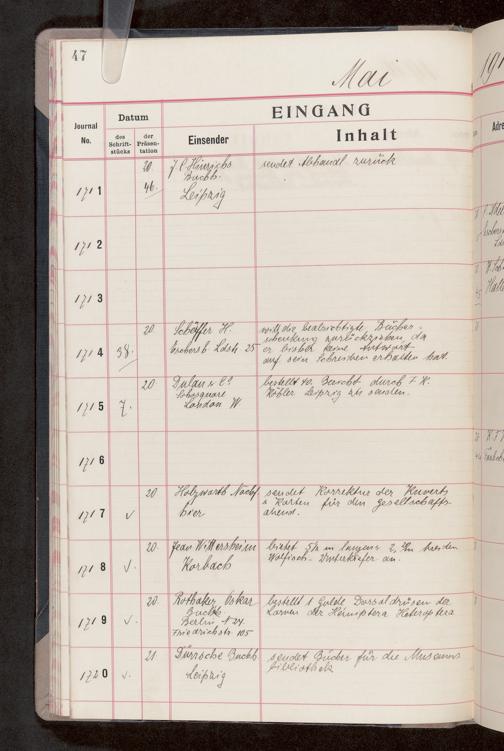 47
Mai
191
Journal No.
Datum
des Schrift-stücks
der Präsen-tation
EINGANG
Einsender
Inhalt
Adre
1711
20
46.
J C Hinrichs
Buchh.
Leipzig
sendet Abhandl zurück
1712
1713
1714
38.
20
Schäffer H.
Ldstr. 25
will die beabsichtigte Bücher-
zurückziehen, da
er bisher keine Antwort
auf sein Schreiben erhalten hat.
1715
7.
20
Dulau & Co
Sohosquare
London W
bestellt 40. Bericht durch F K.
Köhler Leipzig zu senden.
1716
1717
20
Holzwarth Nachf
hier
sendet Korrektur der Kuverts
u Karten für den Gesellschafts-
abend.
1718
20.
Jean Wittersheim
Korbach
bietet 5½ m langen
Walfisch-Unterkiefer an.
1719
20.
Rothacker Oskar
Buchh.
Berlin, N 24.
Friedrichstr. 105
bestellt 1 Gulde Dorsaldrüsen der
Larven der Hemiptera Heteroptera
1720
21.
Dürrsche Buchh
Leipzig
sendet Bücher für die Museums
bibliothek